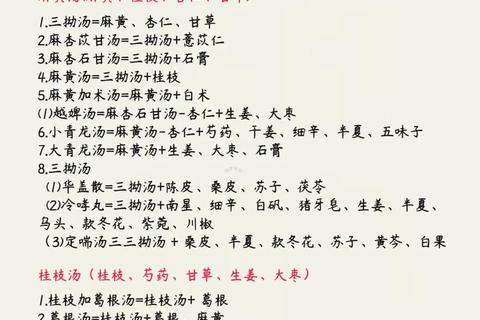 1.三拗汤=麻黄、杏仁、甘草
2.麻杏苡甘汤=三拗汤+薏苡仁
3.麻杏石甘汤=三拗汤+石膏
4.麻黄汤=三拗汤+桂枝
5.麻黄加术汤=麻黄汤+白术
(1)越婢汤=麻杏石甘汤-杏仁+生姜、大枣
6.小青龙汤=麻黄汤-杏仁+芍药、干姜、细辛、半夏、五味子
7.大青龙汤=麻黄汤+生姜、大枣、石膏
8.三拗汤
(1)华盖散=三拗汤+陈皮、桑皮、苏子、茯苓
(2)冷哮丸=三拗汤+南星、细辛、白矾、猪牙皂、生姜、半夏、
乌头、款冬花、紫菀、川椒
(3)定喘汤三三拗汤 + 桑皮、半夏、款冬花、苏子、黄芩、白果
桂枝汤（桂枝、芍药、甘草、生姜、大枣）
1.桂枝加葛根汤=桂枝汤+ 葛根
2.葛根汤=桂枝汤+葛根、麻黄